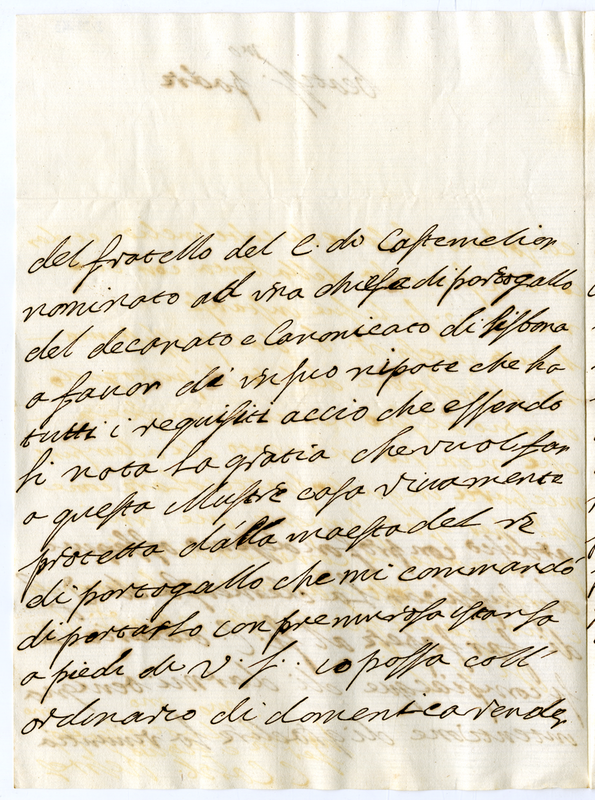 del fratello del C. di Castemelior
nominato ad una chiesa di portogallo
del decanato e Canonicato di lisbona
a favor di un suo nipote che ha
tutti i requisiti accio che essendo
li nota la gratia che vuol far
a questa illustre casa vivamente
protetta dalla maesta del re
di portogallo che mi commandó
di portarlo con premurosa istansa
a piedi di V. S. io possa coll'
ordinario di domenica render